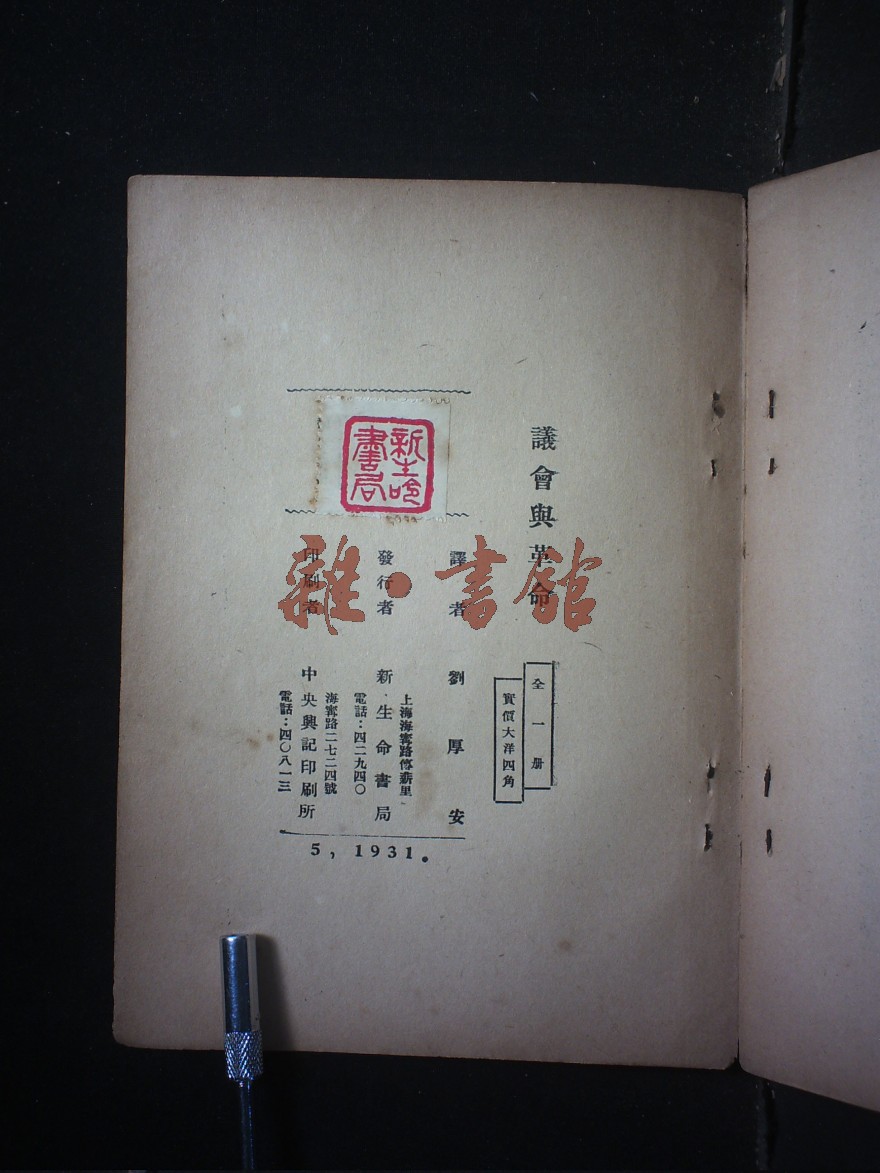 議會與革命
全一册
實價大洋四角
譯者 劉厚安
上海海寗路傅薪里
發行者 新生命書局
電話：四二九四〇
海寗路二七二四號
印刷者 中央興記印刷所
電話：四〇八一三
新生命書局
5, 1931.
雜·書館